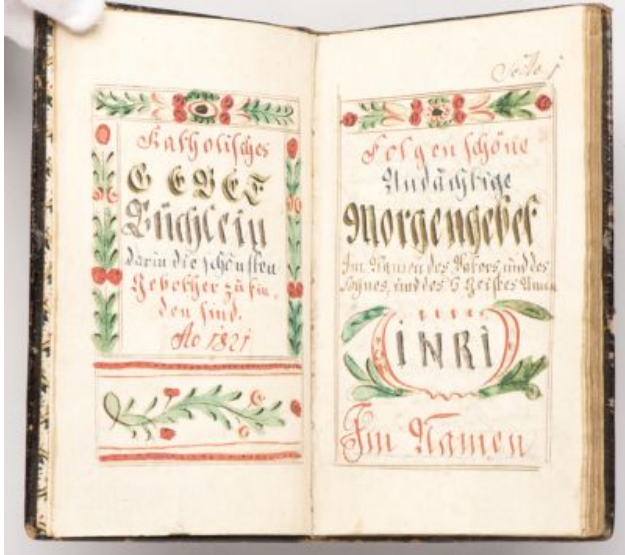 Katholisches
GEBET
Büchlein
darin die schönsten
Gebether zu fin,
den sind.
Ao 1821
Seite 1
Folgen schöne
Andächtige
Morgengebet
Im Namen des Vaters, und des
Sohnes, und des H Geistes Amen
INRI
Im Namen